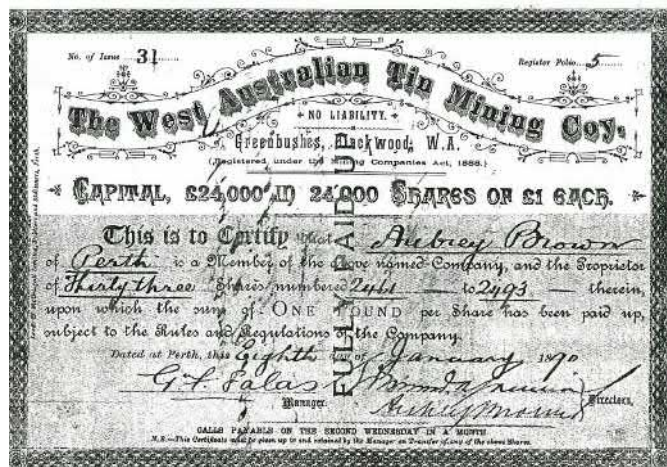 No. of Issue 31
Register Folio 5
The West Australian Tin Mining Coy.
NO LIABILITY.
Greenbushes, Blackwood, W.A.
(Registered under the Mining Companies Act, 1888.)
CAPITAL, £24,000 IN 24,000 SHARES OF £1 EACH.
This is to Certify that Aubrey Brown
of Perth is a Member of the above named Company, and the Proprietor
of Thirty three Shares numbered 2461 to 2493 therein,
upon which the sum of ONE POUND per Share has been paid up,
subject to the Rules and Regulations of the Company.
Dated at Perth, this Eighth day of January 1890
Manager.
Directors.
FULLY PAID UP
CALLS PAYABLE ON THE SECOND WEDNESDAY IN A MONTH
N.B.—This Certificate must be given up to and retained by the Manager on Transfer of any of the above Shares.